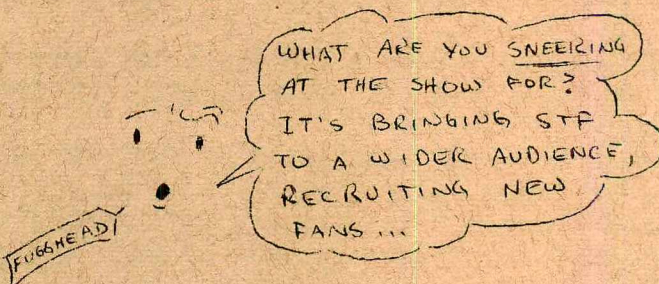 WHAT ARE YOU SNEERING
AT THE SHOW FOR?
IT'S BRINGING STF
TO A WIDER AUDIENCE,
RECRUITING NEW
FANS...
FUGGHEAD